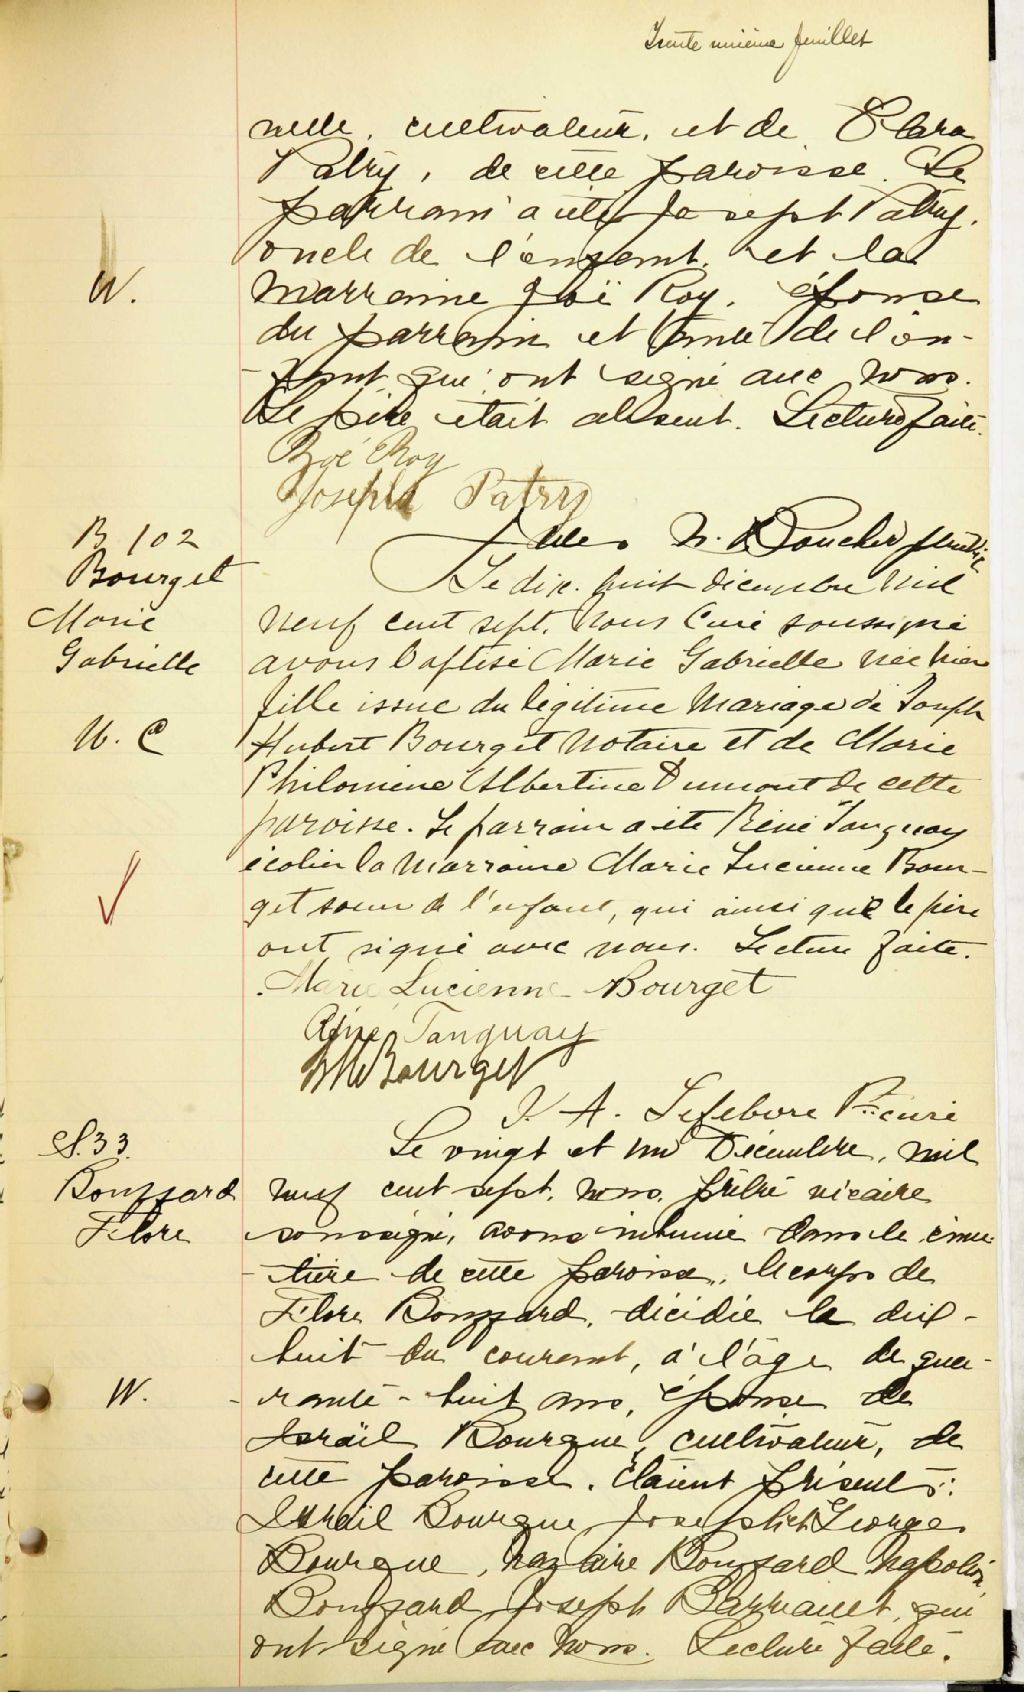 Trente unième feuillet
nelle, cultivateur, et de Clara
Patry, de cette paroisse. Le
parrain a été Joseph Patry,
oncle de l'enfant, et la
marraine Zoë Roy, épouse
du parrain et tante de l'en-
-fant qui ont signé avec nous.
Le père était absent. Lecture faite.
Zoé Roy
Joseph Patry
N. Boucher
B 102
Bourget
Marie
Gabrielle
Le dix-huit décembre mil
neuf cent sept, nous Curé soussigné
avons baptisé Marie Gabrielle née hier
fille issue du légitime mariage de Joseph
Hubert Bourget Notaire et de Marie
Philomène Albertine Dumont de cette
paroisse. Le parrain a été Réné Tanguay
écolier la marraine Marie Lucienne Bour-
get soeur de l'enfant, qui ainsi que le père
ont signé avec nous. Lecture faite.
Marie Lucienne Bourget
Réné Tanguay
Bourget
J. A. Lefebvre Ptre curé
S. 33.
Bouffard
Flore
Le vingt et un Décembre, mil
neuf cent sept, nous, prêtre vicaire
soussigné, avons inhumé dans le cime-
-tière de cette paroisse, le corps de
Flore Bouffard, décédée le dix-
huit du courant, à l'âge de qua-
-rante-huit ans, épouse de
Israël Bourque, cultivateur, de
cette paroisse. Etaient présents:
Israël Bourque Joseph et George
Bourque, Nazaire Bouffard Napoléon
Bouffard Joseph Barriault, qui
ont signé avec nous. Lecture faite.